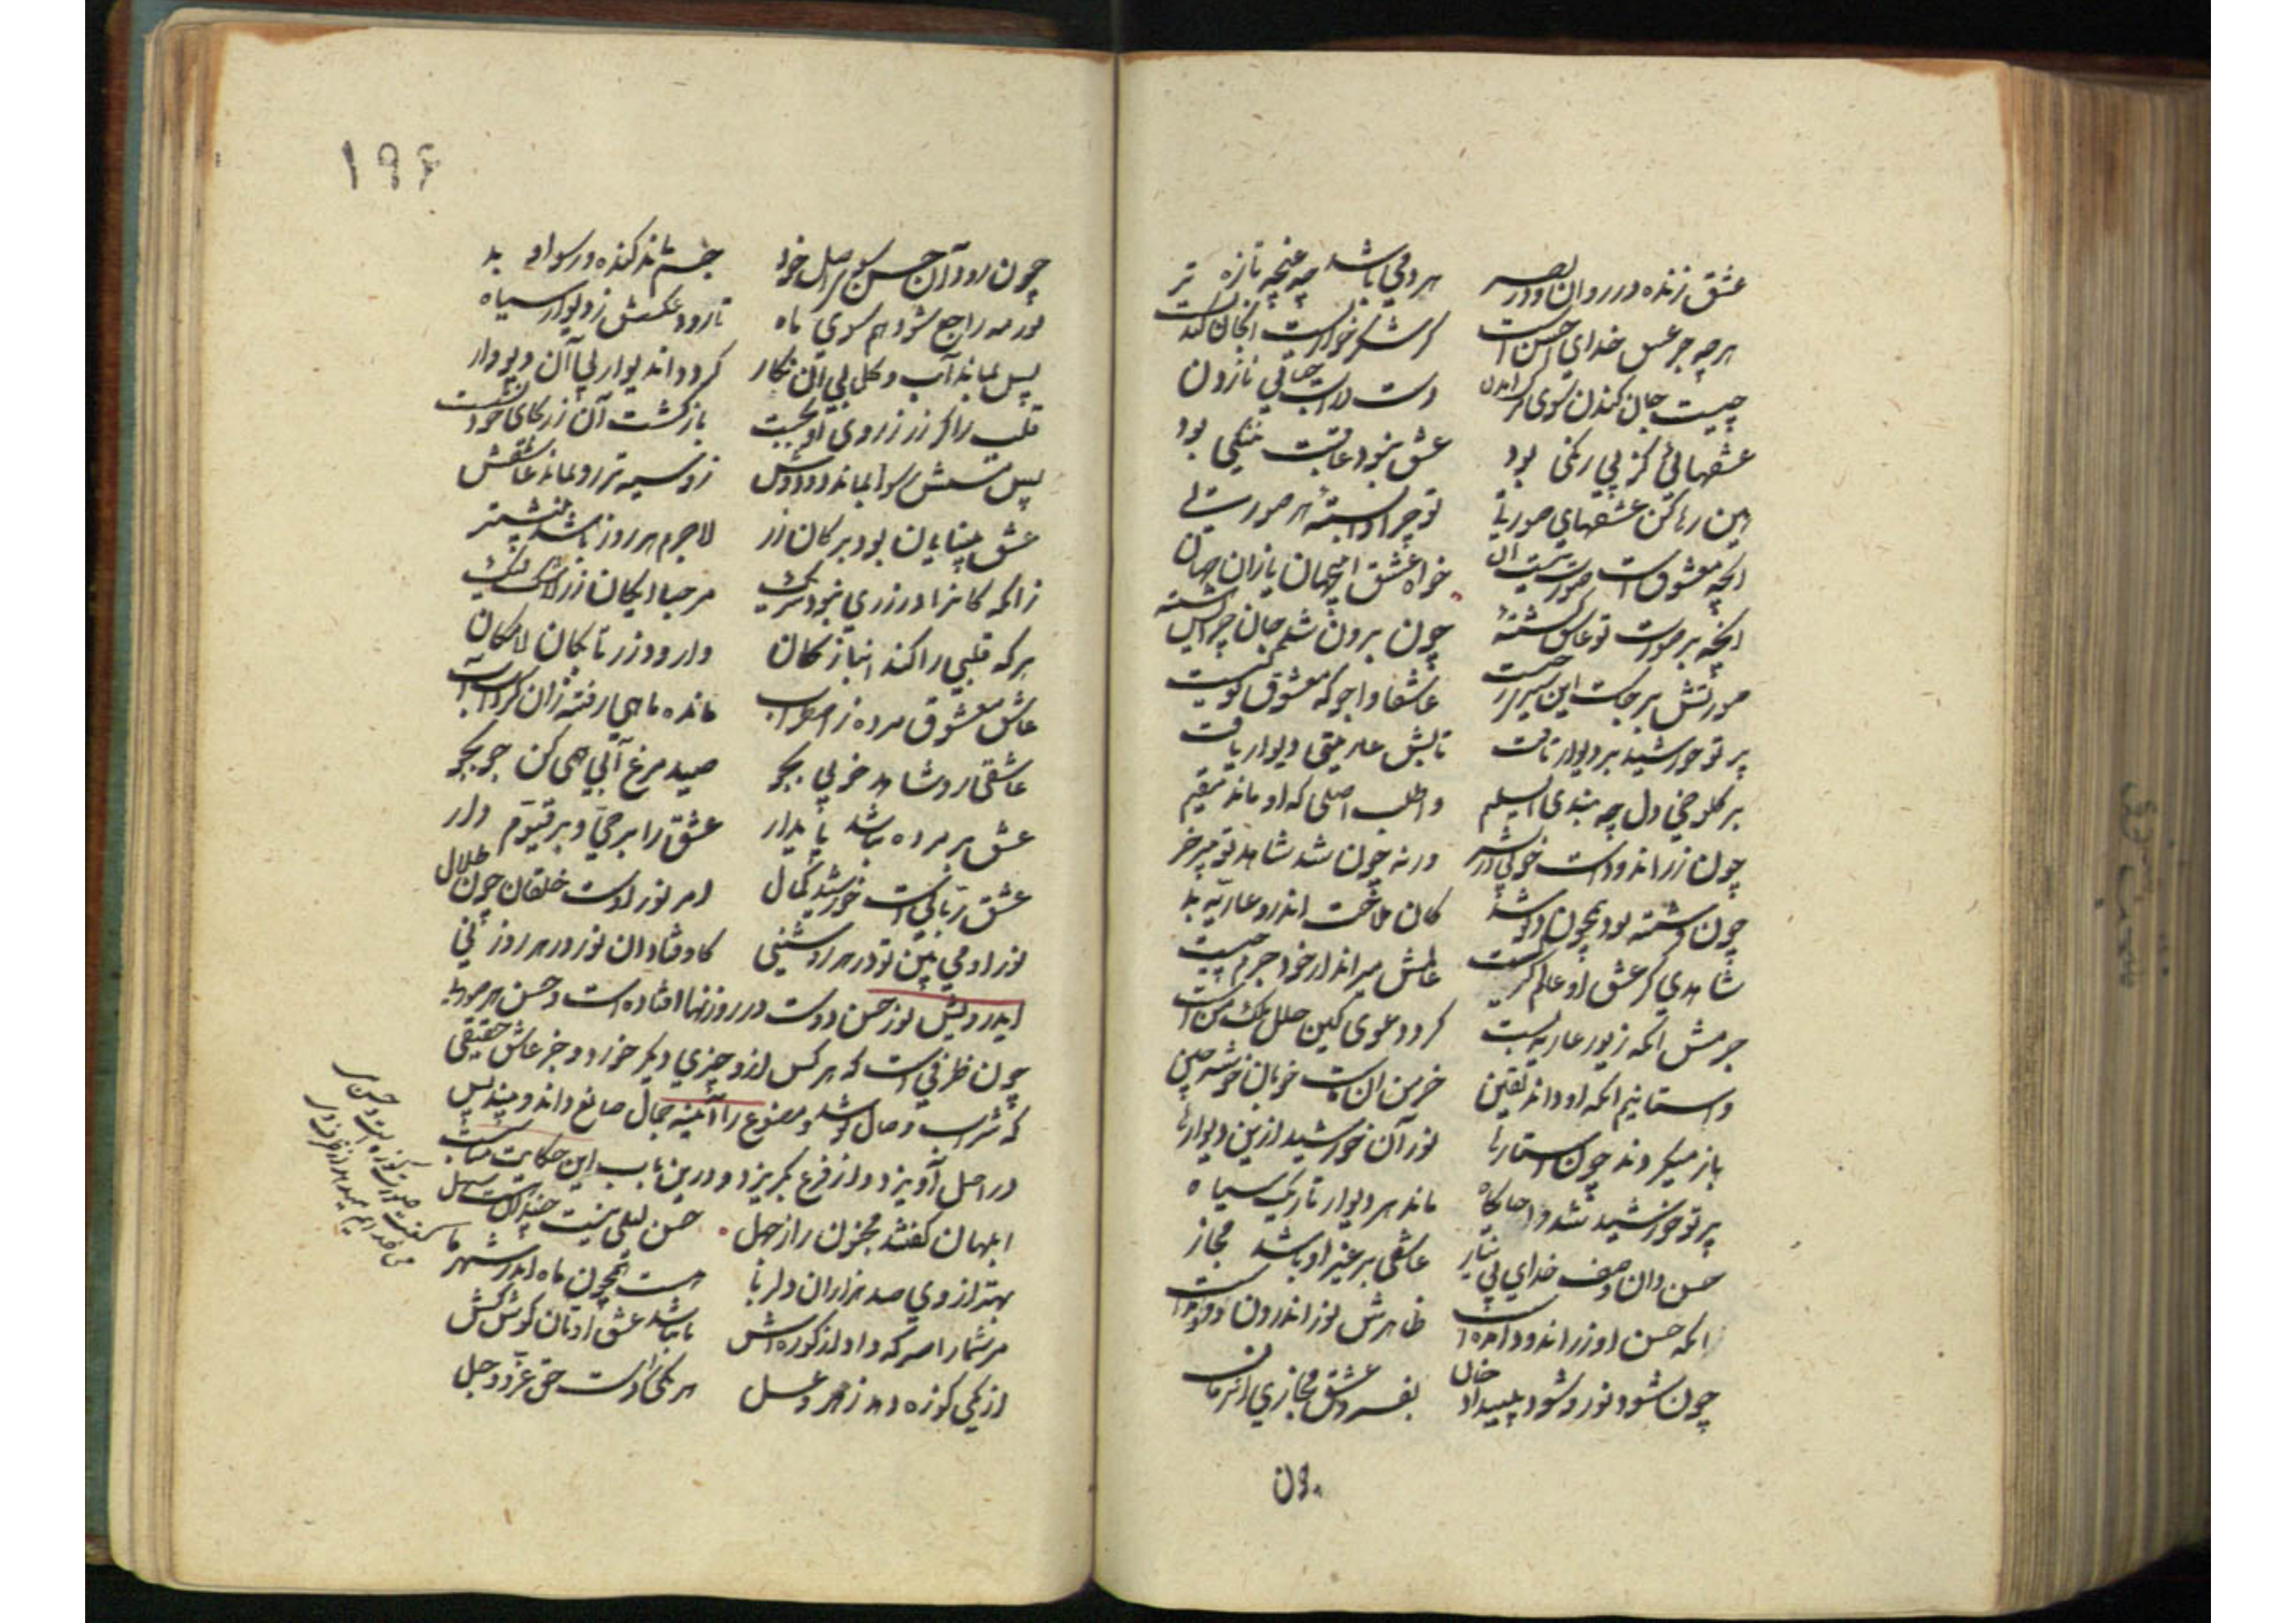 عشق زنده در روان و در بصر هر دمی باشد چه غنچه تازه تر
هرچه جز عشق خدای احسن است گر شکر خواریست آن جان کندنست
چیست جان کندن سوی مرگ آمدن دست در آب حیاتی نازدن
عشقهائی کز پی رنگی بود عشق نبود عاقبت ننگی بود
هین رها کن عشقهای صورتی تو چرا وابستهٔ هر صورتی
آنچه معشوق است صورت نیست آن خواه عشق این جهان یا زان جهان
آنچه بر صورت تو عاشق گشتهٔ چون برون شد جان چرایش هشتهٔ
صورتش بر جاست این سیری ز چیست عاشقا واجو که معشوق تو کیست
پرتو خورشید بر دیوار تافت تابش عاریتی دیوار یافت
بر کلوخی دل چه بندی ای سلیم واطلب اصلی که او ماند مقیم
چون زراندود است خوبی در بشر ورنه چون شد شاهد تو پیر خر
چون فرشته بود همچون دیو شد کان ملاحت اندرو عاریه بد
شاهدی کز عشق او عالم گریست عالمش میراند از خود جرم چیست
جرمش آنکه زیور عاریه بست کرد دعوی کین حلل ملک من است
واستانیم آنکه او داند یقین خرمن آن ماست خوبان خوشه چین
باز میگردند چون استارها نور آن خورشید ازین دیوارها
پرتو خورشید شد وا جایگاه ماند هر دیوار تاریک سیاه
حسن دان وصف خدای بی نیاز عاشقی بر غیر او باشد مجاز
آنکه حسن او زراندود آمده است ظاهرش نور اندرون دود آمده است
چون شود نور و شود پیدا دخان بفسرد عشق مجازی آن زمان
چون
۱۹۶
چون رود آن حسن سوی اصل خود جسم ماند گنده و رسوا و بد
نور مه راجع شود هم سوی ماه تا رود عکسش ز دیوار سیاه
پس بماند آب و گل بی آن نگار گردد آن دیوار بی آن دیووار
قلب را که زر ز روی او بجست بازگشت آن زر بکان خود نشست
پس مس رسوا بماند دودوش زو سیه‌تر رو بماند عاشقش
عشق بینایان بود بر کان زر لاجرم هر روز باشد بیشتر
زانکه کان را در زری نبود شریک مرحبا ای کان زر لاشک فیک
هر که قلبی را کند انباز کان وا رود زر تا بکان لامکان
عاشق معشوق مرده ز اضطراب مانده ماهی رفته زان گرداب آب
عاشقی رو شاهد خوبی بجو صید مرغ آبی همی کن جو بجو
عشق بر مرده نباشد پایدار عشق را بر حی و بر قیوم دار
عشق ربانی است خورشید کمال امر نور اوست خلقان چون ظلال
نور او می بین تو در هر روشنی کاوفتاد آن نور در هر روزنی
ایدرویش نور حسن دوست در روزنها افتاده است و حسن هر صورت
چون ظرفی است که هر کس ازو چیزی دیگر خورد و جز عاشق حقیقی
که شراب وصال نوشد و مصنوع را آئینه جمال صانع داند و بیند پس
در اصل آویزد و از فرع بگریزد و درین باب این حکایت مناسبست
ابلهان گفتند مجنون را ز جهل حسن لیلی نیست چندان هست سهل
بهتر از وی صد هزاران دلربا هست همچون ماه اندر شهر ما
مر شما را سرکه داد از کوزه‌اش تا نباشد عشق اوتان گوش کش
از یکی کوزه دهد زهر و عسل هر یکی را دست حق عز و جل
گفت صورت کوزه است و حسن می
می خدایم میدهد از ظرف وی